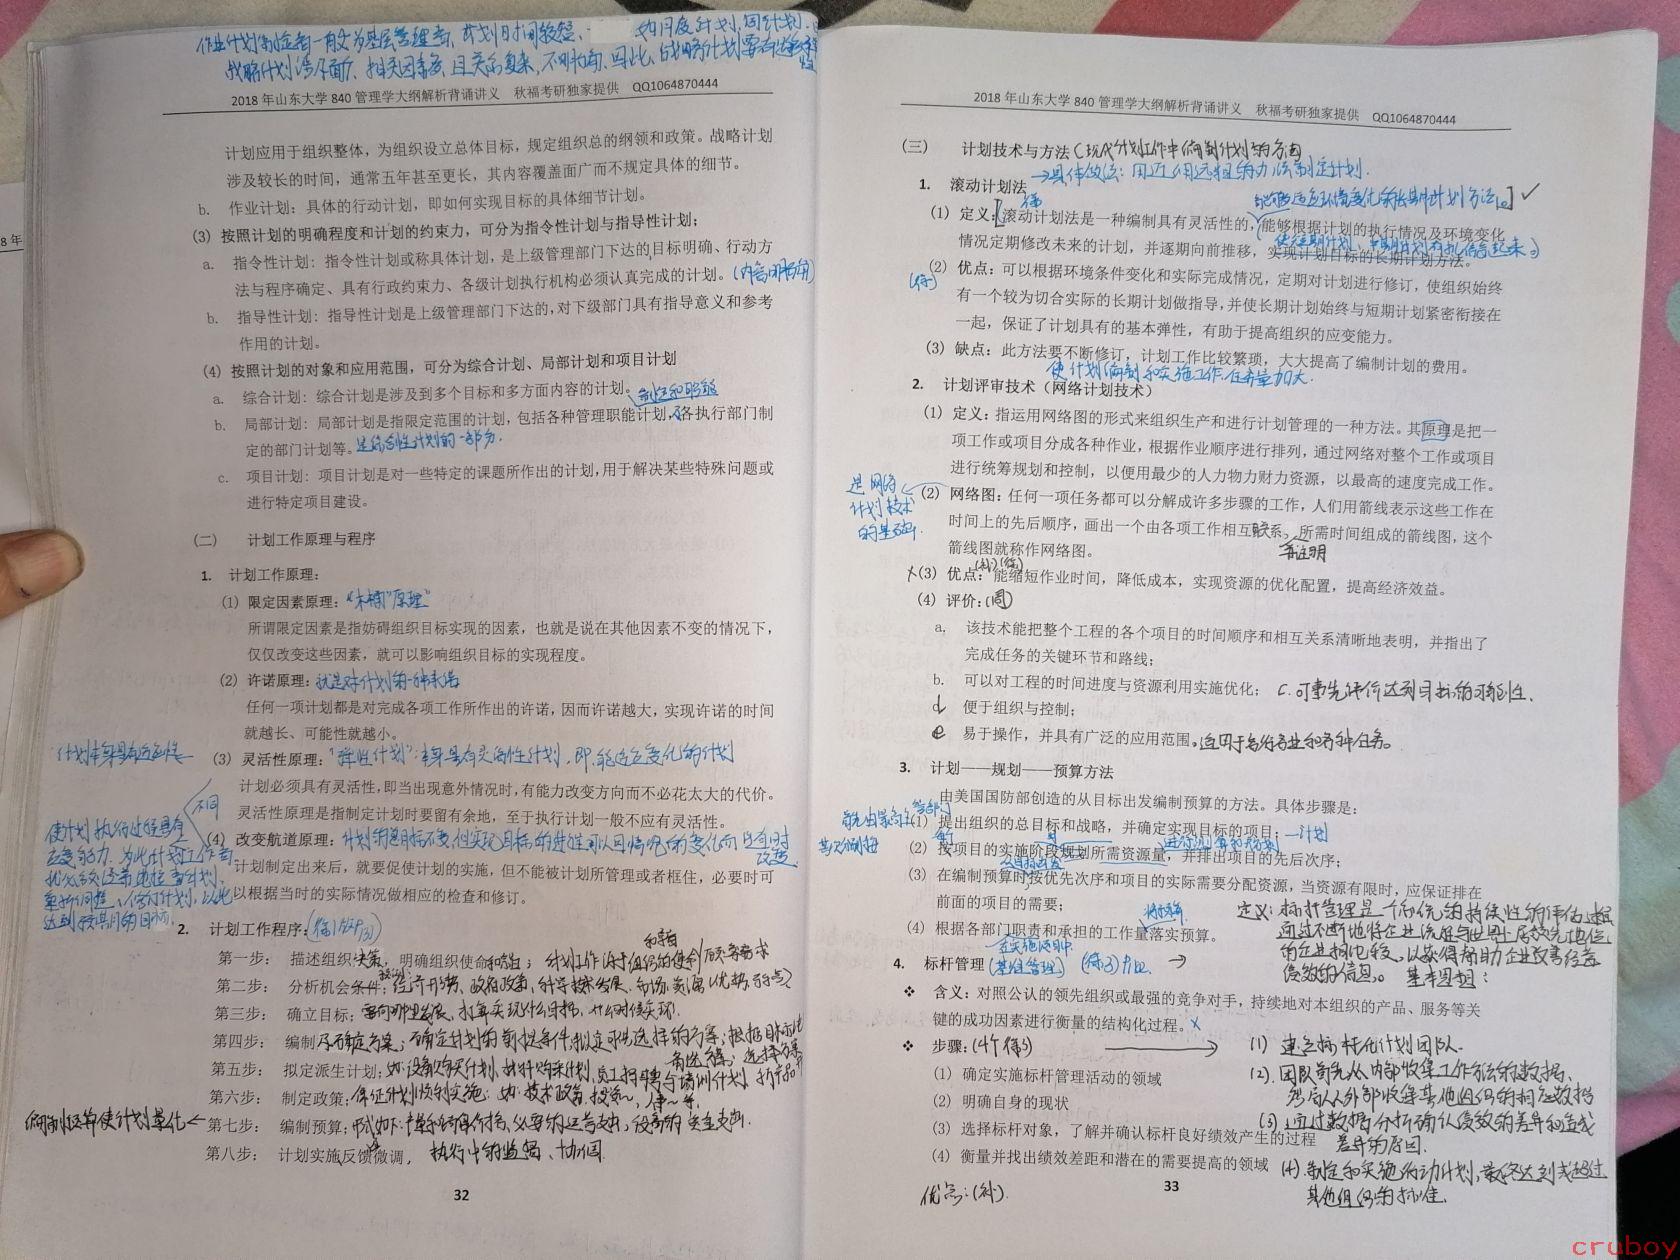 作业计划制定者一般为基层管理者、计划时间较短、 如月度计划、周计划.
战略计划涉及面广、相关因素多、且关系复杂,不明确,因此,战略计划要有
2018 年山东大学 840 管理学大纲解析背诵讲义 秋福考研独家提供 QQ1064870444
计划应用于组织整体，为组织设立总体目标，规定组织总的纲领和政策。战略计划
涉及较长的时间，通常五年甚至更长，其内容覆盖面广而不规定具体的细节。
b. 作业计划：具体的行动计划，即如何实现目标的具体细节计划。
(3) 按照计划的明确程度和计划的约束力，可分为指令性计划与指导性计划；
a. 指令性计划：指令性计划或称具体计划，是上级管理部门下达的目标明确、行动方
法与程序确定、具有行政约束力、各级计划执行机构必须认真完成的计划。(内容明确)
b. 指导性计划：指导性计划是上级管理部门下达的，对下级部门具有指导意义和参考
作用的计划。
(4) 按照计划的对象和应用范围，可分为综合计划、局部计划和项目计划
a. 综合计划：综合计划是涉及到多个目标和多方面内容的计划。
制定和职能
b. 局部计划：局部计划是指限定范围的计划，包括各种管理职能计划，各执行部门制
定的部门计划等。是综合性计划的一部分.
c. 项目计划：项目计划是对一些特定的课题所作出的计划，用于解决某些特殊问题或
进行特定项目建设。
(二) 计划工作原理与程序
1. 计划工作原理：
(1) 限定因素原理："木桶"原理"
所谓限定因素是指妨碍组织目标实现的因素，也就是说在其他因素不变的情况下，
仅仅改变这些因素，就可以影响组织目标的实现程度。
(2) 许诺原理：就是对计划的一种承诺
任何一项计划都是对完成各项工作所作出的许诺，因而许诺越大，实现许诺的时间
就越长、可能性就越小。
计划本身具有适应性
(3) 灵活性原理："弹性计划"：本身具有灵活性计划，即能适应变化的计划
计划必须具有灵活性，即当出现意外情况时，有能力改变方向而不必花太大的代价。
不同
灵活性原理是指制定计划时要留有余地，至于执行计划一般不应有灵活性。
使计划执行过程具有
应变能力，为此计划工作者
(4) 改变航道原理：计划的总目标不变，但实现目标的进程可以因情况的变化而随时
改变
计划制定出来后，就要促使计划的实施，但不能被计划所管理或者框住，必要时可
以根据当时的实际情况做相应的检查和修订。
重新调整、修订计划，以此
达到预期的目标.
2. 计划工作程序：
第一步： 描述组织，明确组织使命和宗旨； 计划工作源于组织的使命
第二步： 分析机会条件；经济形势、政府政策、科学技术发展、市场、资源（优势、弱点）
第三步： 确立目标；要向哪里发展、打算实现什么目标、什么时候实现.
第四步： 编制 ；确定计划的前提条件；拟定可供选择的方案；根据目标
第五步： 拟定派生计划；如：设备购买计划、材料购买计划、员工招聘与培训计划
第六步： 制定政策；保证计划顺利实施：如：技术政策
编制预算使计划量化
第七步： 编制预算；
第八步： 计划实施反馈微调， 执行中的监督、协调
32
2018 年山东大学 840 管理学大纲解析背诵讲义 秋福考研独家提供 QQ1064870444
(三) 计划技术与方法（现代计划工作中编制计划的方法
→具体做法：用近细远粗的办法制定计划.
1. 滚动计划法
能够适应环境变化的长期计划方法
(1) 定义：滚动计划法是一种编制具有灵活性的，能够根据计划的执行情况及环境变化
使短期计划、中期计划有机结合起来。
情况定期修改未来的计划，并逐期向前推移，实现计划目标的长期计划方法。
(2) 优点：可以根据环境条件变化和实际完成情况，定期对计划进行修订，使组织始终
有一个较为切合实际的长期计划做指导，并使长期计划始终与短期计划紧密衔接在
一起，保证了计划具有的基本弹性，有助于提高组织的应变能力。
(3) 缺点：此方法要不断修订，计划工作比较繁琐，大大提高了编制计划的费用。
使计划编制和实施工作任务量加大.
2. 计划评审技术（网络计划技术）
(1) 定义：指运用网络图的形式来组织生产和进行计划管理的一种方法。其原理是把一
项工作或项目分成各种作业，根据作业顺序进行排列，通过网络对整个工作或项目
进行统筹规划和控制，以便用最少的人力物力财力资源，以最高的速度完成工作。
是网络
计划技术
的基础.
(2) 网络图：任何一项任务都可以分解成许多步骤的工作，人们用箭线表示这些工作在
时间上的先后顺序，画出一个由各项工作相互联系，所需时间组成的箭线图，这个
箭线图就称作网络图。
并注明
(3) 优点：能缩短作业时间，降低成本，实现资源的优化配置，提高经济效益。
(4) 评价：(周)
a. 该技术能把整个工程的各个项目的时间顺序和相互关系清晰地表明，并指出了
完成任务的关键环节和路线；
b. 可以对工程的时间进度与资源利用实施优化； c.可事先评价达到目标的可能性.
d 便于组织与控制；
e 易于操作，并具有广泛的应用范围。适用于各行各业和各种任务。
3. 计划——规划——预算方法
由美国国防部创造的从目标出发编制预算的方法。具体步骤是：
首先由最高
(1) 提出组织的总目标和战略，并确定实现目标的项目；—计划
(2) 按项目的实施阶段规划所需资源量，并排出项目的先后次序；
(3) 在编制预算时按优先次序和项目的实际需要分配资源，当资源有限时，应保证排在
前面的项目的需要；
(4) 根据各部门职责和承担的工作量落实预算。
4. 标杆管理（基准管理）
定义：标杆管理是一个系统的持续性的评估过程
通过不断地将企业流程与世界上居领先地位
的企业相比较，以获得帮助企业改善经营
绩效的信息。 基本思想：
❖ 含义：对照公认的领先组织或最强的竞争对手，持续地对本组织的产品、服务等关
键的成功因素进行衡量的结构化过程。x
❖ 步骤：
(1) 确定实施标杆管理活动的领域
(2) 明确自身的现状
(3) 选择标杆对象，了解并确认标杆良好绩效产生的过程
(4) 衡量并找出绩效差距和潜在的需要提高的领域
(1) 建立标杆化计划团队.
(2).团队首先从内部收集工作方法的数据、
然后从外部收集其他组织的相应数据
(3) 通过数据分析确认绩效的差异和造成
差异的原因.
(4).制定和实施行动计划，最终达到或超过
其他组织的标准.
优点：(补).
33
cruboy